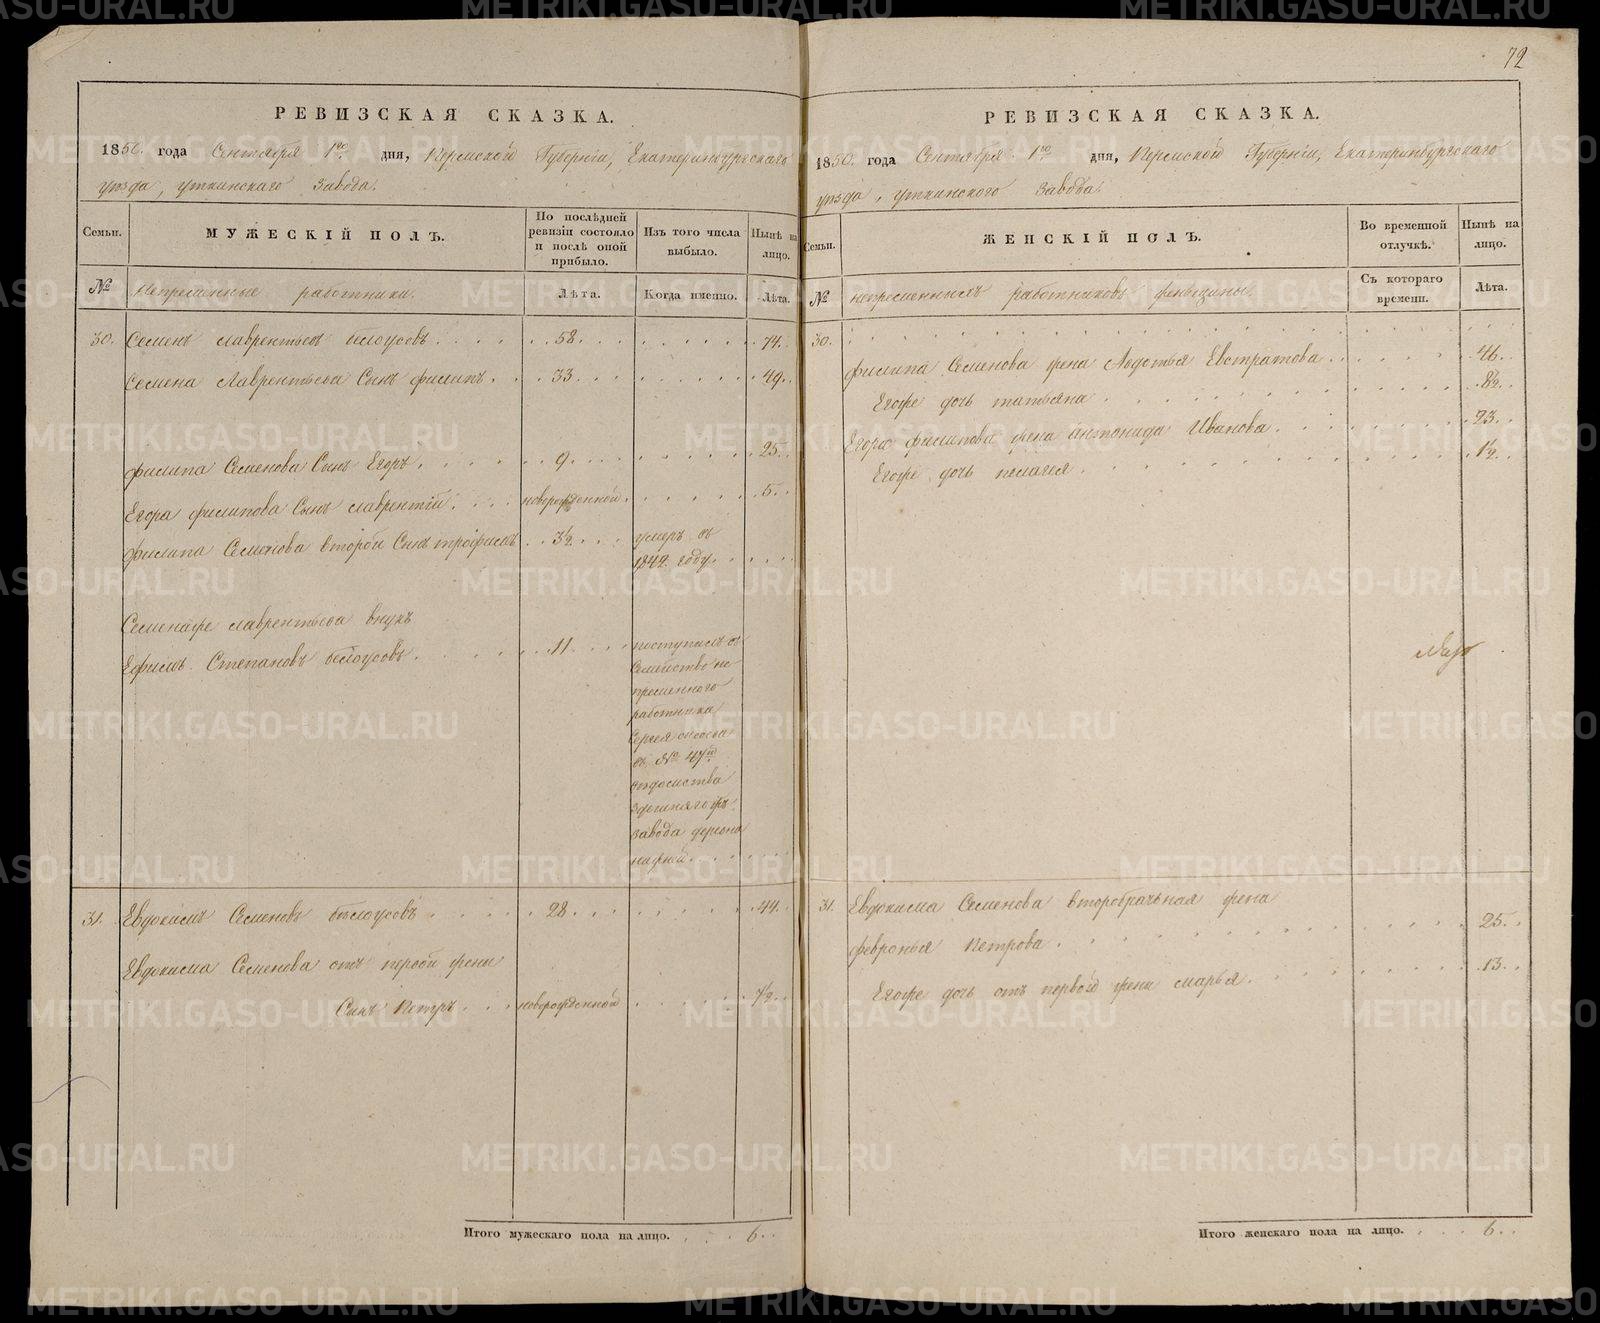 72
РЕВИЗСКАЯ СКАЗКА.
1850. года Сентября 1го. дня, Пермской Губернiи, Екатеринбургскаго
уѣзда, уткинскаго завода.
Семьи.
МУЖЕСКIЙ ПОЛЪ.
По послѣдней
ревизiи состояло
и послѣ оной
прибыло.
Изъ того числа
выбыло.
Нынѣ на
лицо.
№
Непременные работники.
Лѣта.
Когда именно.
Лѣта.
30. Семенъ лаврентьевъ белоусовъ 58. 74.
Семена Лаврентьева Сынъ филипъ. 33. 49.
филипа Семенова Сынъ Егоръ 9. 25.
Егора филипова Сынъ лаврентiй новорожденной. 5.
филипа Семенова второй Сынъ трофимъ 3½. умеръ въ
1842. году.
Семенаже лаврентьева внукъ
Ефимъ Степановъ белоусовъ 11. поступилъ въ
Семейство не
пременного
работника
Сергея
въ № 47й
завода
31. Евдокимъ Семеновъ белоусовъ 28. 44.
Евдокима Семенова отъ первой жены
Сынъ Петръ новорожденной ½.
Итого мужескаго пола на лицо. 6.
РЕВИЗСКАЯ СКАЗКА.
1850. года Сентября 1го. дня, Пермской Губернiи, Екатеринбургскаго
уѣзда, уткинского завода.
Семьи.
ЖЕНСКIЙ ПОЛЪ.
Во временной
отлучкѣ.
Нынѣ на
лицо.
№
непременныхъ работниковъ женщины.
Съ котораго
времени.
Лѣта.
30.
филипа Семенова жена Авдотья Евстратова 46.
Егоже дочь татьяна 8½.
Егора филипова жена антонида Иванова 23.
Егоже дочь пелагея 1½.
31. Евдокима Семенова второбрачная жена
февронья Петрова 25.
Егоже дочь отъ первой жены марья 13.
Итого женскаго пола на лицо. 6.
METRIKI.GASO-URAL.RU